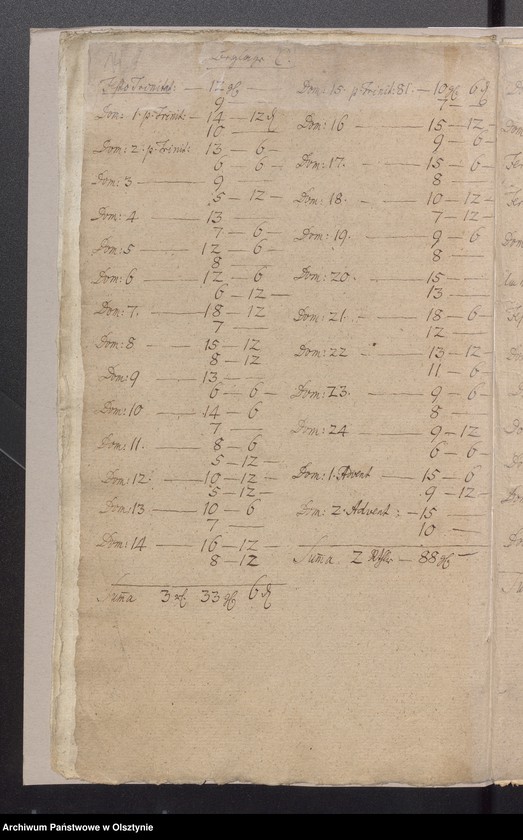 Festo Trinitat: — 12 gl —
9 —
Dom: 1. p. Trinit — 14 — 12 d
10 —
Dom: 2. p. Trinit: 13 — 6 —
6 — 6 —
Dom: 3 — 9 —
5 — 12 —
Dom: 4 — 13 —
7 — 6 —
Dom: 5 — 12 — 6 —
8 —
Dom: 6 — 12 — 6
6 — 12 —
Dom: 7. — 18 — 12
7 —
Dom: 8 — 15 — 12
8 — 12
Dom: 9 — 13 —
6 — 6 —
Dom: 10 — 14 — 6
7 —
Dom: 11. — 8 — 6
5 — 12 —
Dom: 12: — 10 — 12 —
5 — 12 —
Dom: 13 — 10 — 6
7 —
Dom: 14 — 16 — 12 —
8 — 12
Suma 3 33 gl 6 d
Dom: 15. p. Trinit: 81. — 10 gl 6 d
7 — 6
Dom: 16 — 15 — 12 —
9 — 6 —
Dom: 17. — 15 — 6
8 —
Dom: 18. — 10 — 12 —
7 — 12 —
Dom: 19. — 9 — 6
8 —
Dom: 20. — 15 —
13 —
Dom: 21. — 18 — 6 —
12 —
Dom: 22 — 13 — 12 —
11 — 6
Dom: 23. — 9 — 6 —
8 —
Dom: 24 — 9 — 12
6 — 6 —
Dom: 1. Advent — 15 — 6
9 — 12 —
Dom: 2. Advent: — 15 —
10 —
Suma 2 — 88 gl —
Archiwum Państwowe w Olsztynie